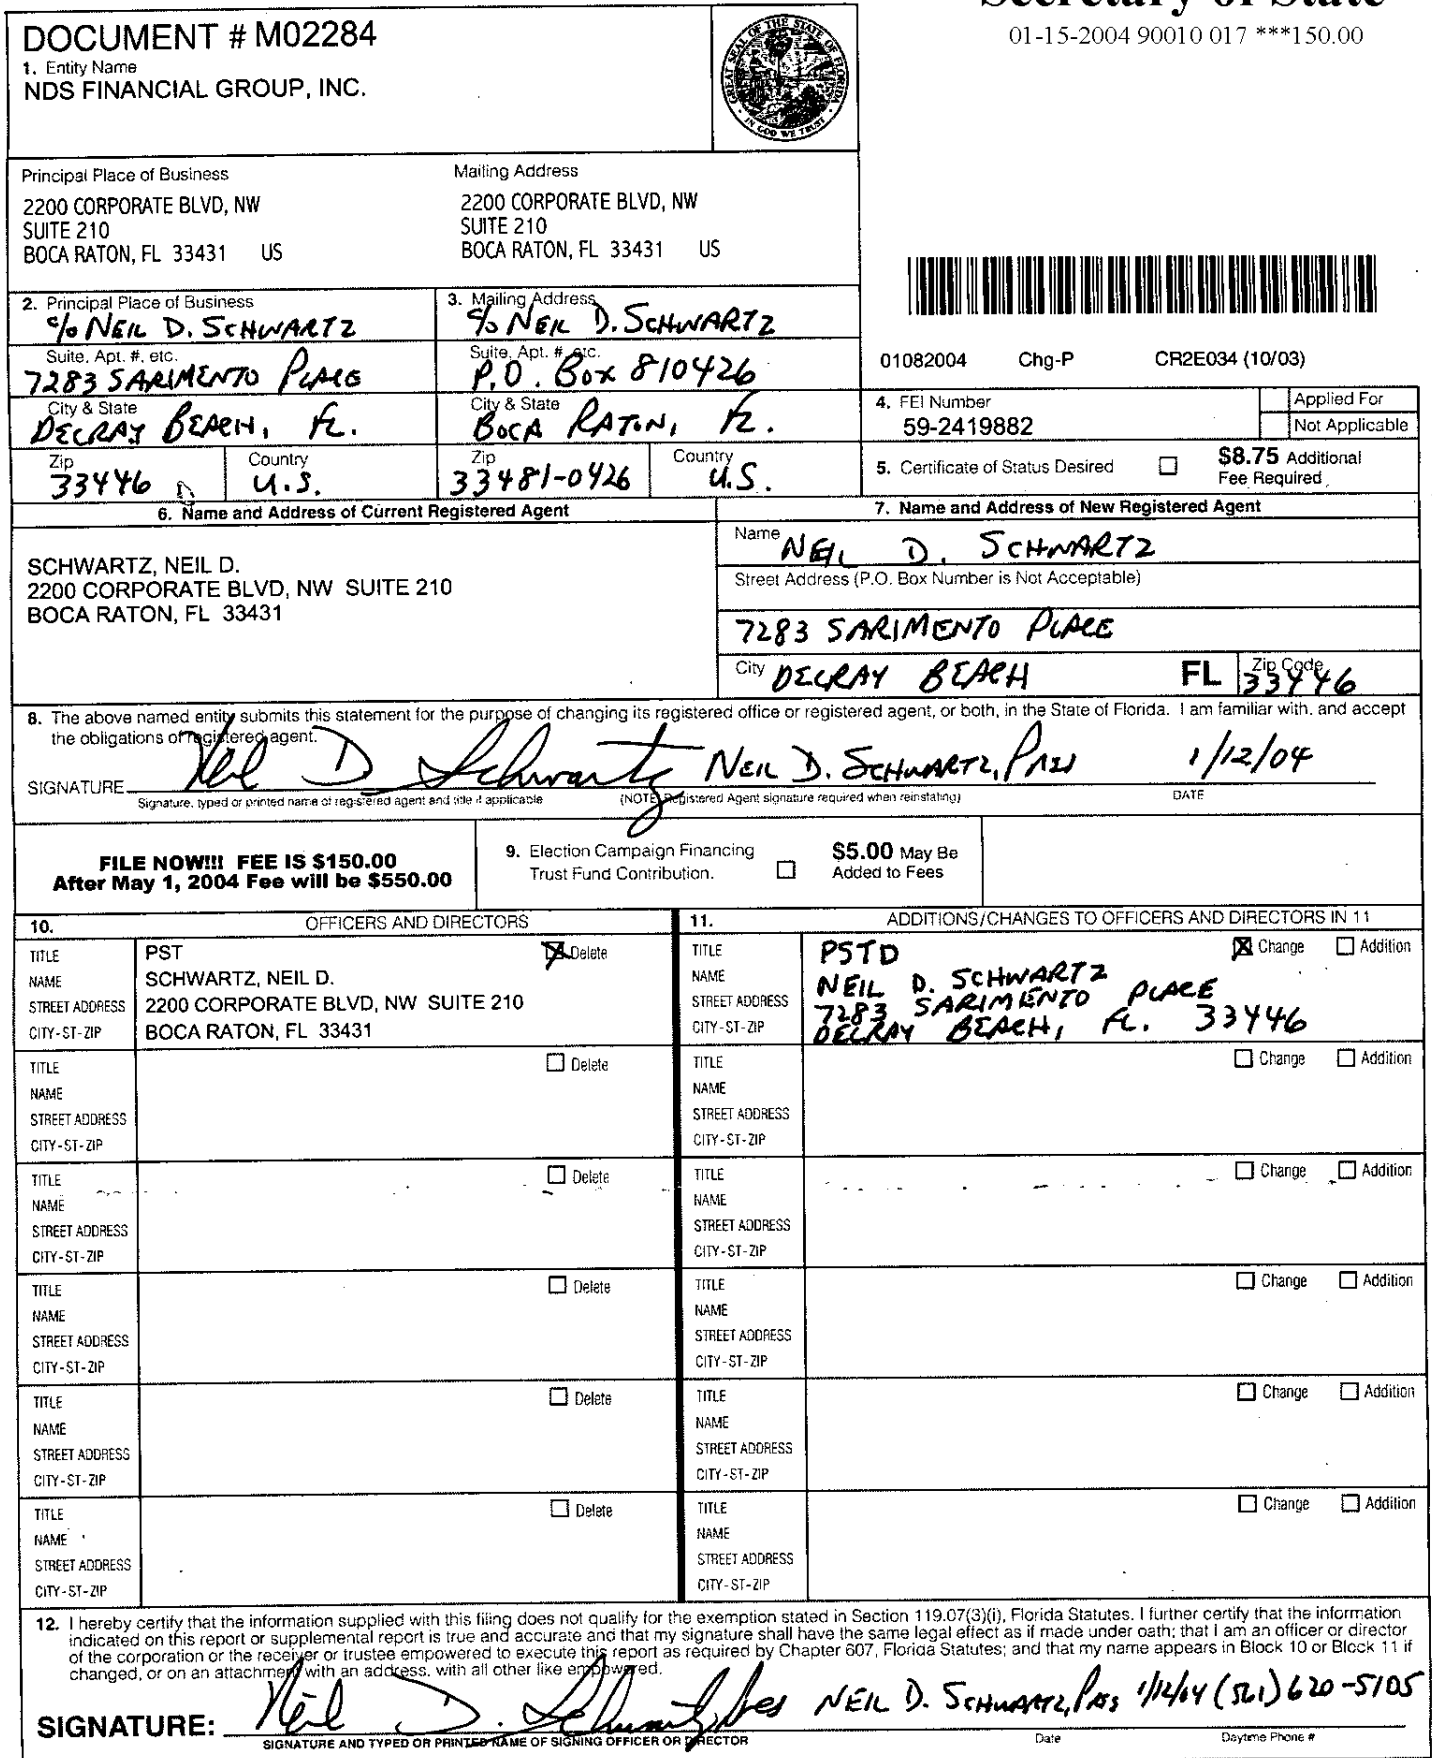 Secretary of State
01-15-2004 90010 017 ***150.00
DOCUMENT # M02284
1. Entity Name
NDS FINANCIAL GROUP, INC.
GREAT SEAL OF THE STATE OF FLORIDA
IN GOD WE TRUST
Principal Place of Business
2200 CORPORATE BLVD, NW
SUITE 210
BOCA RATON, FL 33431 US
Mailing Address
2200 CORPORATE BLVD, NW
SUITE 210
BOCA RATON, FL 33431 US
2. Principal Place of Business
c/o NEIL D. SCHWARTZ
Suite, Apt. #, etc.
7283 SARIMENTO PLACE
City & State
DELRAY BEACH, FL.
Zip
33446
Country
U.S.
3. Mailing Address
c/o NEIL D. SCHWARTZ
Suite, Apt. #, etc.
P.O. BOX 810426
City & State
BOCA RATON, FL.
Zip
33481-0426
Country
U.S.
01082004 Chg-P CR2E034 (10/03)
4. FEI Number
59-2419882
Applied For
Not Applicable
5. Certificate of Status Desired
$8.75 Additional
Fee Required
6. Name and Address of Current Registered Agent
SCHWARTZ, NEIL D.
2200 CORPORATE BLVD, NW SUITE 210
BOCA RATON, FL 33431
7. Name and Address of New Registered Agent
Name NEIL D. SCHWARTZ
Street Address (P.O. Box Number is Not Acceptable)
7283 SARIMENTO PLACE
City DELRAY BEACH FL Zip Code 33446
8. The above named entity submits this statement for the purpose of changing its registered office or registered agent, or both, in the State of Florida. I am familiar with, and accept
the obligations of registered agent.
SIGNATURE Neil D Schwartz NEIL D. SCHWARTZ, PRES 1/12/04
Signature, typed or printed name of registered agent and title if applicable (NOTE: Registered Agent signature required when reinstating) DATE
FILE NOW!!! FEE IS $150.00
After May 1, 2004 Fee will be $550.00
9. Election Campaign Financing
Trust Fund Contribution.
$5.00 May Be
Added to Fees
10. OFFICERS AND DIRECTORS
TITLE PST Delete
NAME SCHWARTZ, NEIL D.
STREET ADDRESS 2200 CORPORATE BLVD, NW SUITE 210
CITY-ST-ZIP BOCA RATON, FL 33431
TITLE Delete
NAME
STREET ADDRESS
CITY-ST-ZIP
TITLE Delete
NAME
STREET ADDRESS
CITY-ST-ZIP
TITLE Delete
NAME
STREET ADDRESS
CITY-ST-ZIP
TITLE Delete
NAME
STREET ADDRESS
CITY-ST-ZIP
TITLE Delete
NAME
STREET ADDRESS
CITY-ST-ZIP
11. ADDITIONS/CHANGES TO OFFICERS AND DIRECTORS IN 11
TITLE PSTD Change Addition
NAME NEIL D. SCHWARTZ
STREET ADDRESS 7283 SARIMENTO PLACE
CITY-ST-ZIP DELRAY BEACH, FL. 33446
TITLE Change Addition
NAME
STREET ADDRESS
CITY-ST-ZIP
TITLE Change Addition
NAME
STREET ADDRESS
CITY-ST-ZIP
TITLE Change Addition
NAME
STREET ADDRESS
CITY-ST-ZIP
TITLE Change Addition
NAME
STREET ADDRESS
CITY-ST-ZIP
TITLE Change Addition
NAME
STREET ADDRESS
CITY-ST-ZIP
12. I hereby certify that the information supplied with this filing does not qualify for the exemption stated in Section 119.07(3)(i), Florida Statutes. I further certify that the information
indicated on this report or supplemental report is true and accurate and that my signature shall have the same legal effect as if made under oath; that I am an officer or director
of the corporation or the receiver or trustee empowered to execute this report as required by Chapter 607, Florida Statutes; and that my name appears in Block 10 or Block 11 if
changed, or on an attachment with an address, with all other like empowered.
SIGNATURE: Neil D. Schwartz, Pres NEIL D. SCHWARTZ, PRES 1/12/04 (561) 620-5105
SIGNATURE AND TYPED OR PRINTED NAME OF SIGNING OFFICER OR DIRECTOR Date Daytime Phone #